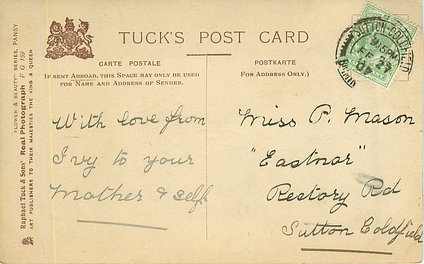 TUCK'S POST CARD
CARTE POSTALE
(IF SENT ABROAD, THIS SPACE MAY ONLY BE USED
FOR NAME AND ADDRESS OF SENDER.
POSTKARTE
FOR ADDRESS ONLY.)
FLOWER & BEAUTY SERIES, PANSY
Raphael Tuck & Sons' Real Photograph F G 159
ART PUBLISHERS TO THEIR MAJESTIES THE KING & QUEEN
With love from
Ivy to your
Mother & self
Miss P. Mason
"Eastnor"
Rectory Rd
Sutton Coldfield
SUTTON-COLDFIELD